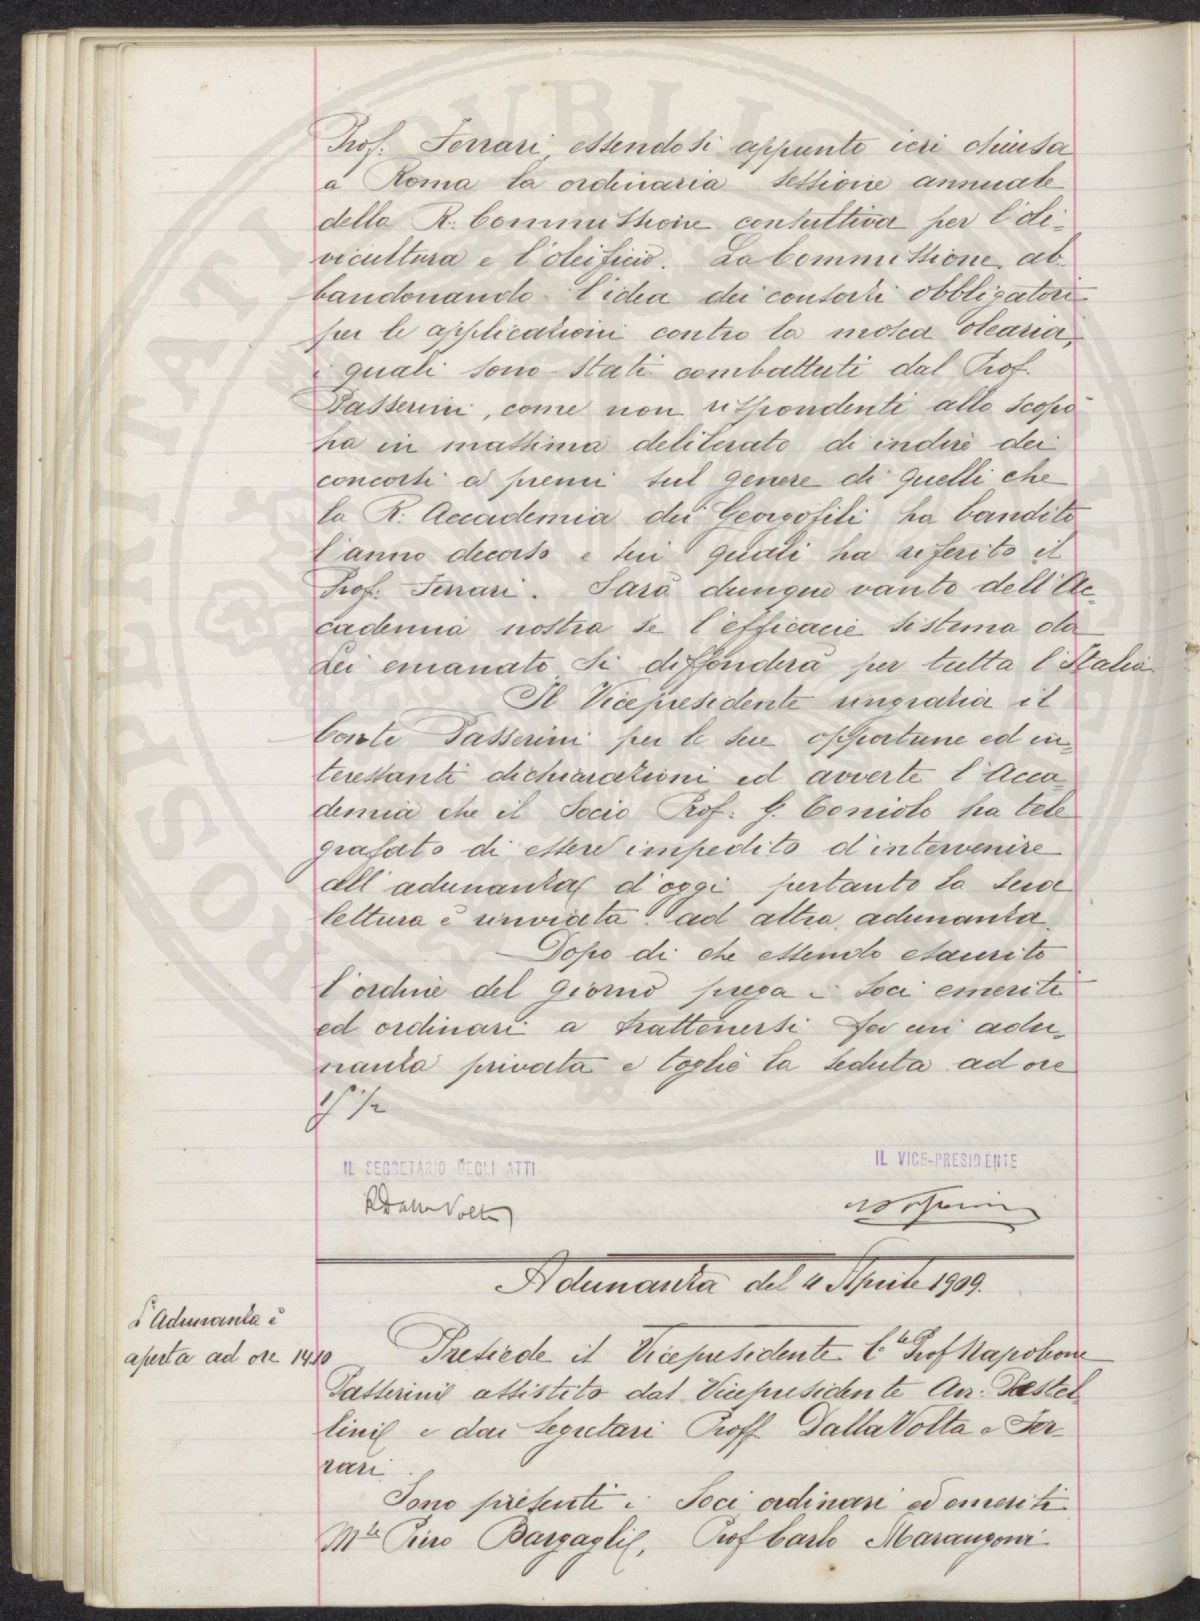 Prof. Ferrari, essendosi appunto ieri chiusa
a Roma la ordinaria sessione annuale
della R. Commissione consultiva per l'oli=
vicultura e l'oleificio. La Commissione, ab
bandonando l'idea dei consorzi obbligatori
per le applicazioni contro la mosca olearia,
i quali sono stati combattuti dal Prof.
Passerini, come non rispondenti allo scopo
ha in massima deliberato di indire dei
concorsi a premi sul genere di quelli che
la R. Accademia dei Georgofili ha bandito
l'anno decorso e sui quali ha riferito il
Prof. Ferrari. Sarà dunque vanto dell'Ac=
cademia nostra se l'efficacie sistema da
Lei emanato si diffonderà per tutta l'Italia
Il Vicepresidente ringrazia il
Conte Passerini per le sue opportune ed in=
teressanti dichiarazioni ed avverte l'Acca=
demia che il Socio Prof. G. Toniolo ha tele
grafato di essere impedito d'intervenire
all'adunanza d'oggi pertanto la sua
lettura è rinviata ad altra adunanza.
Dopo di che essendo esaurito
l'ordine del giorno prega i Soci emeriti
ed ordinari a trattenersi per un adu=
nanza privata e toglie la seduta ad ore
1/2
IL SEGRETARIO DEGLI ATTI
IL VICE-PRESIDENTE
R Dalla Volta
Adunanza del 4 Aprile 1909.
L'Adunanza è
aperta ad ore 14.10
Presiede il Vicepresidente C.te Prof Napoleone
Passerini assistito dal Vicepresidente Avv. Pestel=
lini e dai Segretari Proff. Dalla Volta e Fer-
rari.
Sono presenti i Soci ordinari ed emeriti
M.se Piero Bargagli, Prof Carlo Marangoni
PROSPERITATI PUBLICAE